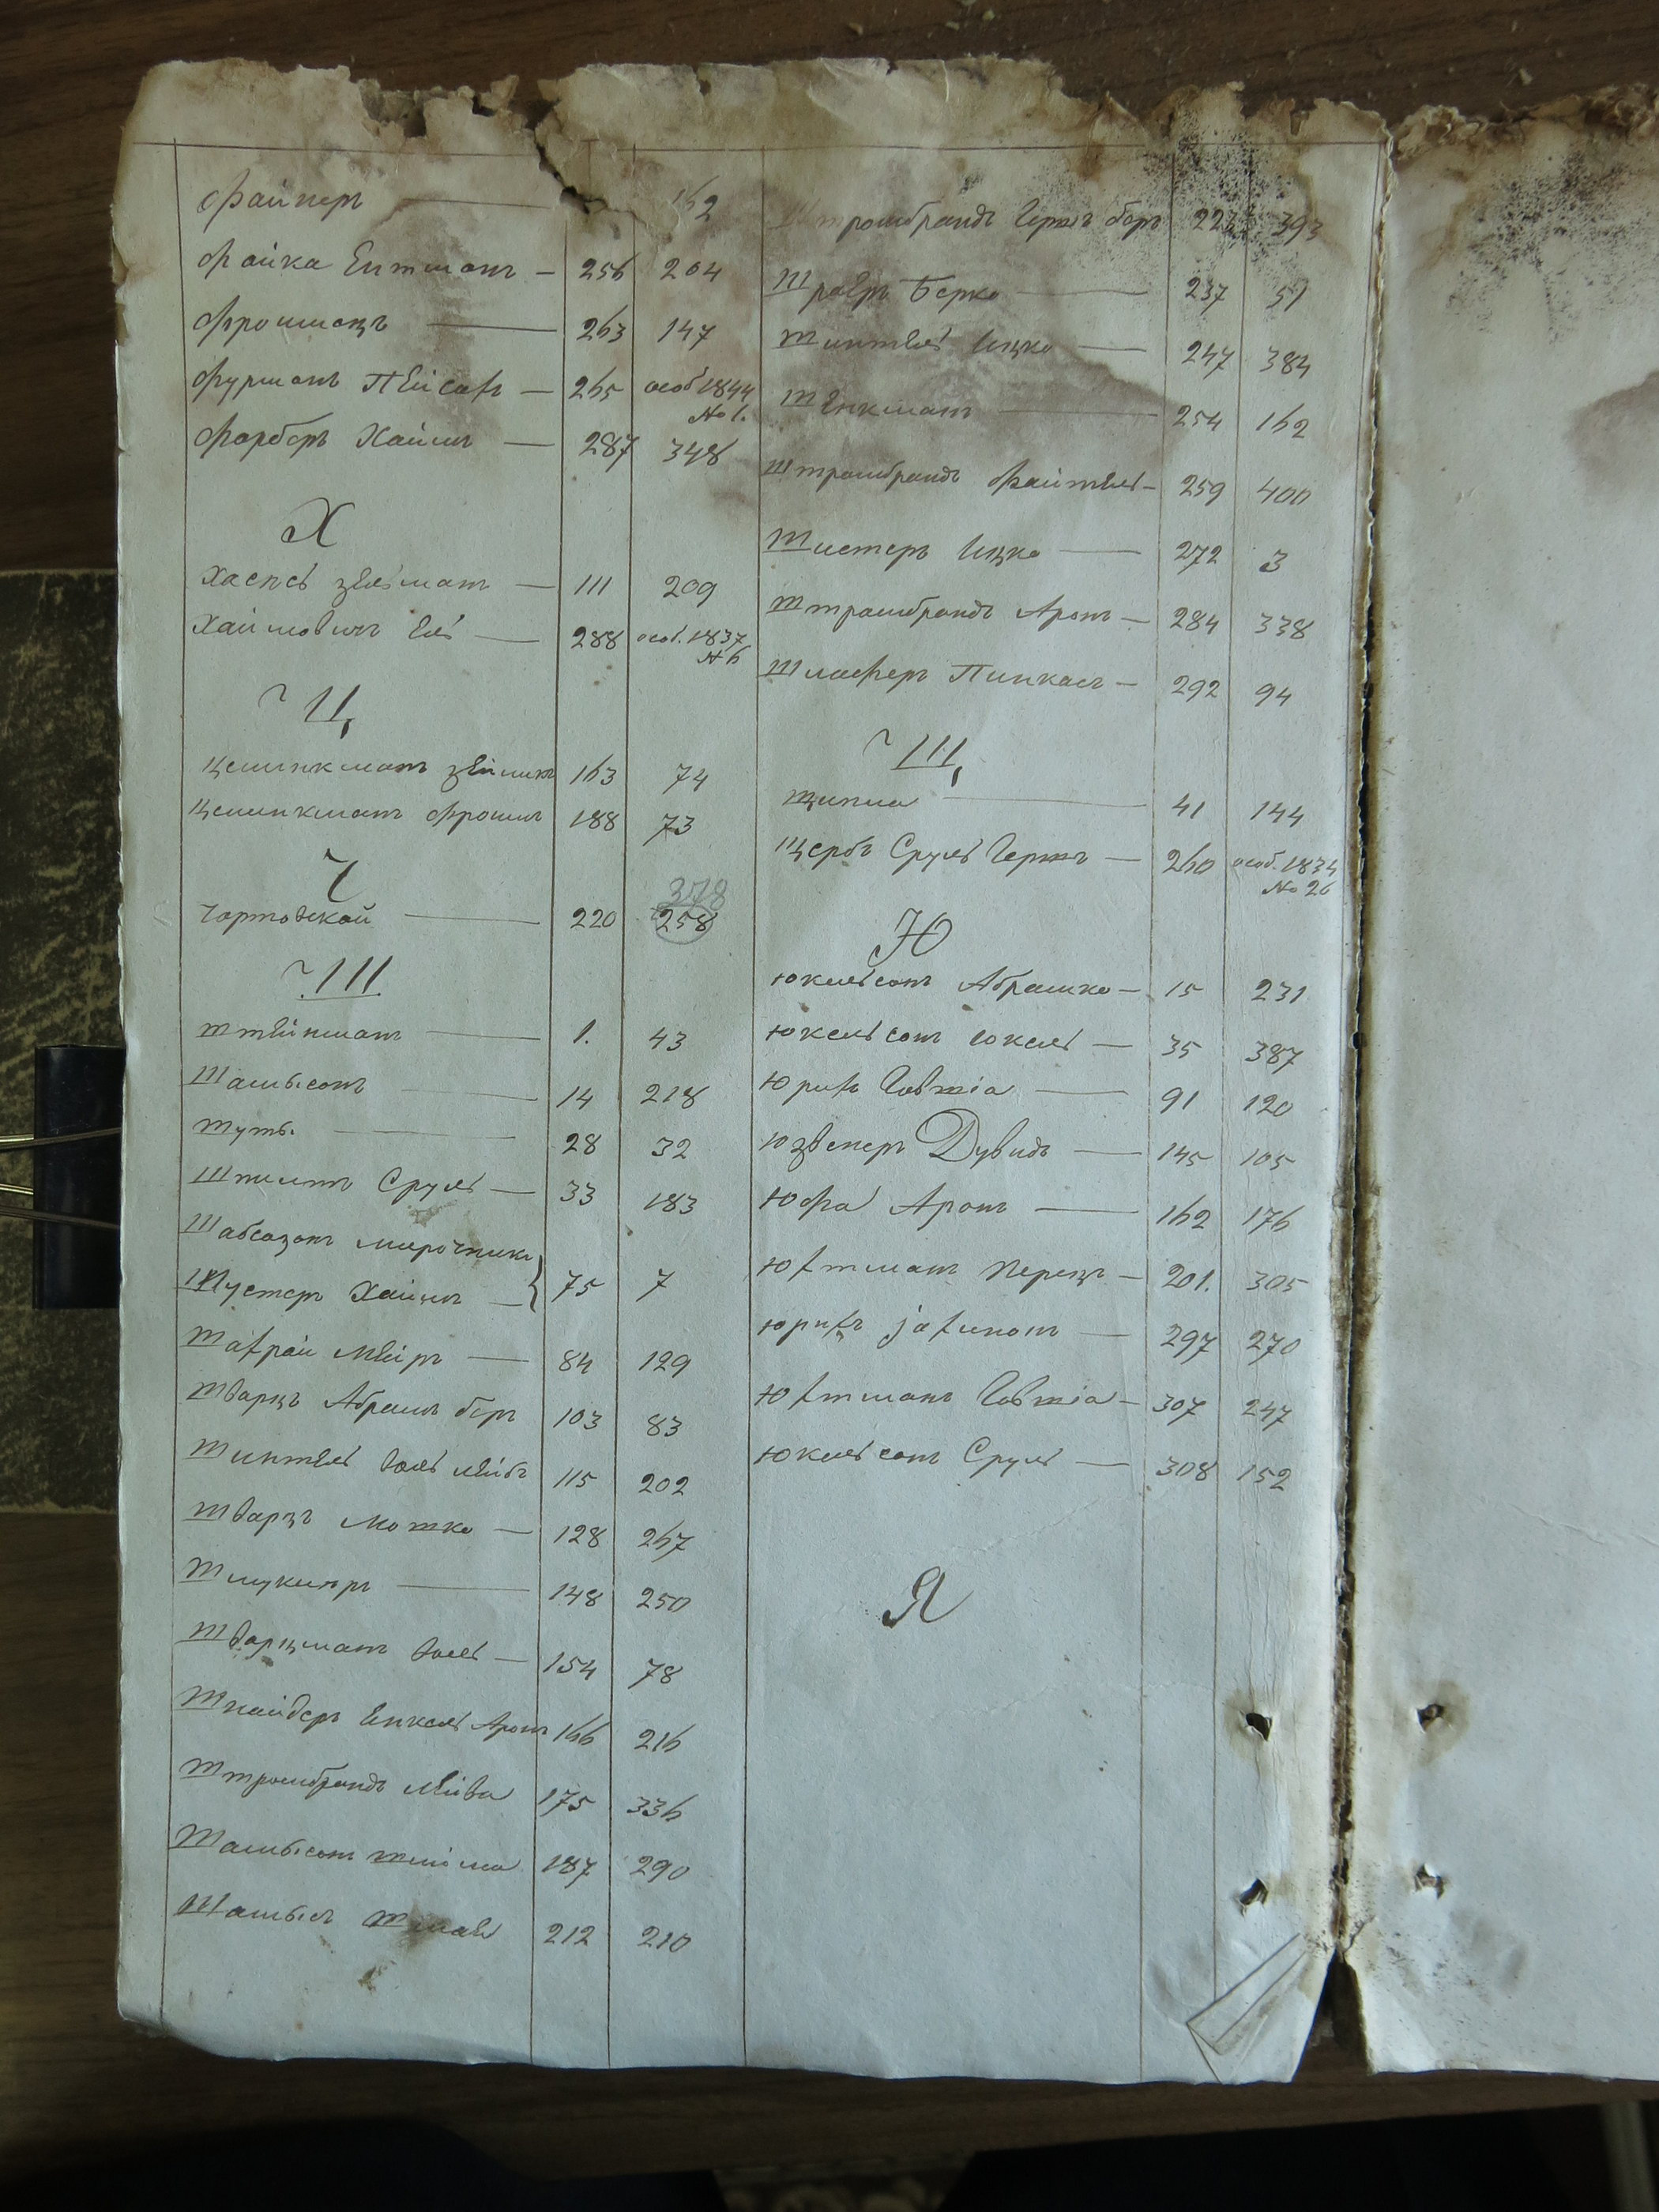 Файнеръ — 162
Файка Ентманъ — 256 204
Фроимацъ — 263 147
Фурманъ Пейсахъ — 265 особ 1844
№ 1.
Фарберъ Хаимъ — 287 348
Х
Хаскель Зельманъ — 111 209
Хаймовичъ Ель — 288 особ. 1837
№ 6
Ц
Цешинкманъ Зейликъ 163 74
Цешинкманъ Фроимъ 188 73
Ч
378
Чортовской — 220 258
Ш
Штейнманъ — 1. 43
Шамысонъ — 14 218
28 32
Сруль — 33 183
Шабсазонъ Мирочникъ
Шустеръ Хаимъ — } 75 7
Шафрай Мейръ — 84 129
Шварцъ Абрамъ беръ 103 83
Шинтель Волъ Лейбъ 115 202
Шварцъ Мошко — 128 267
Шмуклеръ — 148 250
Шварцманъ Воль — 154 78
Шнайдеръ Енкель Аронъ 166 216
Штромбрандъ Лейва 175 336
Шамысонъ Шлиома 187 290
Шамысъ 212 210
Штромбрандъ Гершъ беръ 223 393
Берко — 237 51
Шинтель Ицко — 247 384
Шенкманъ — 254 162
Штромбрандъ Файтель — 259 400
Шистеръ Ицко — 272 3
Штромбрандъ Аронъ — 284 338
Шлаферъ Пинкасъ — 292 94
Щ
Щипма — 41 144
Щербъ Сруль Гершъ — 260 особ. 1834
№ 26
Ю
Юкельсонъ Абрашко — 15 231
Юкельсонъ Іокель — 35 387
Юрифъ Говшіа — 91 120
Юзвенеръ Дувидъ — 145 105
Юфа Аронъ — 162 176
Юфтманъ Перецъ — 201. 305
Юрифъ — 297 270
Юфтманъ Говшіа — 307 247
Юкельсонъ Сруль — 308 152
Я